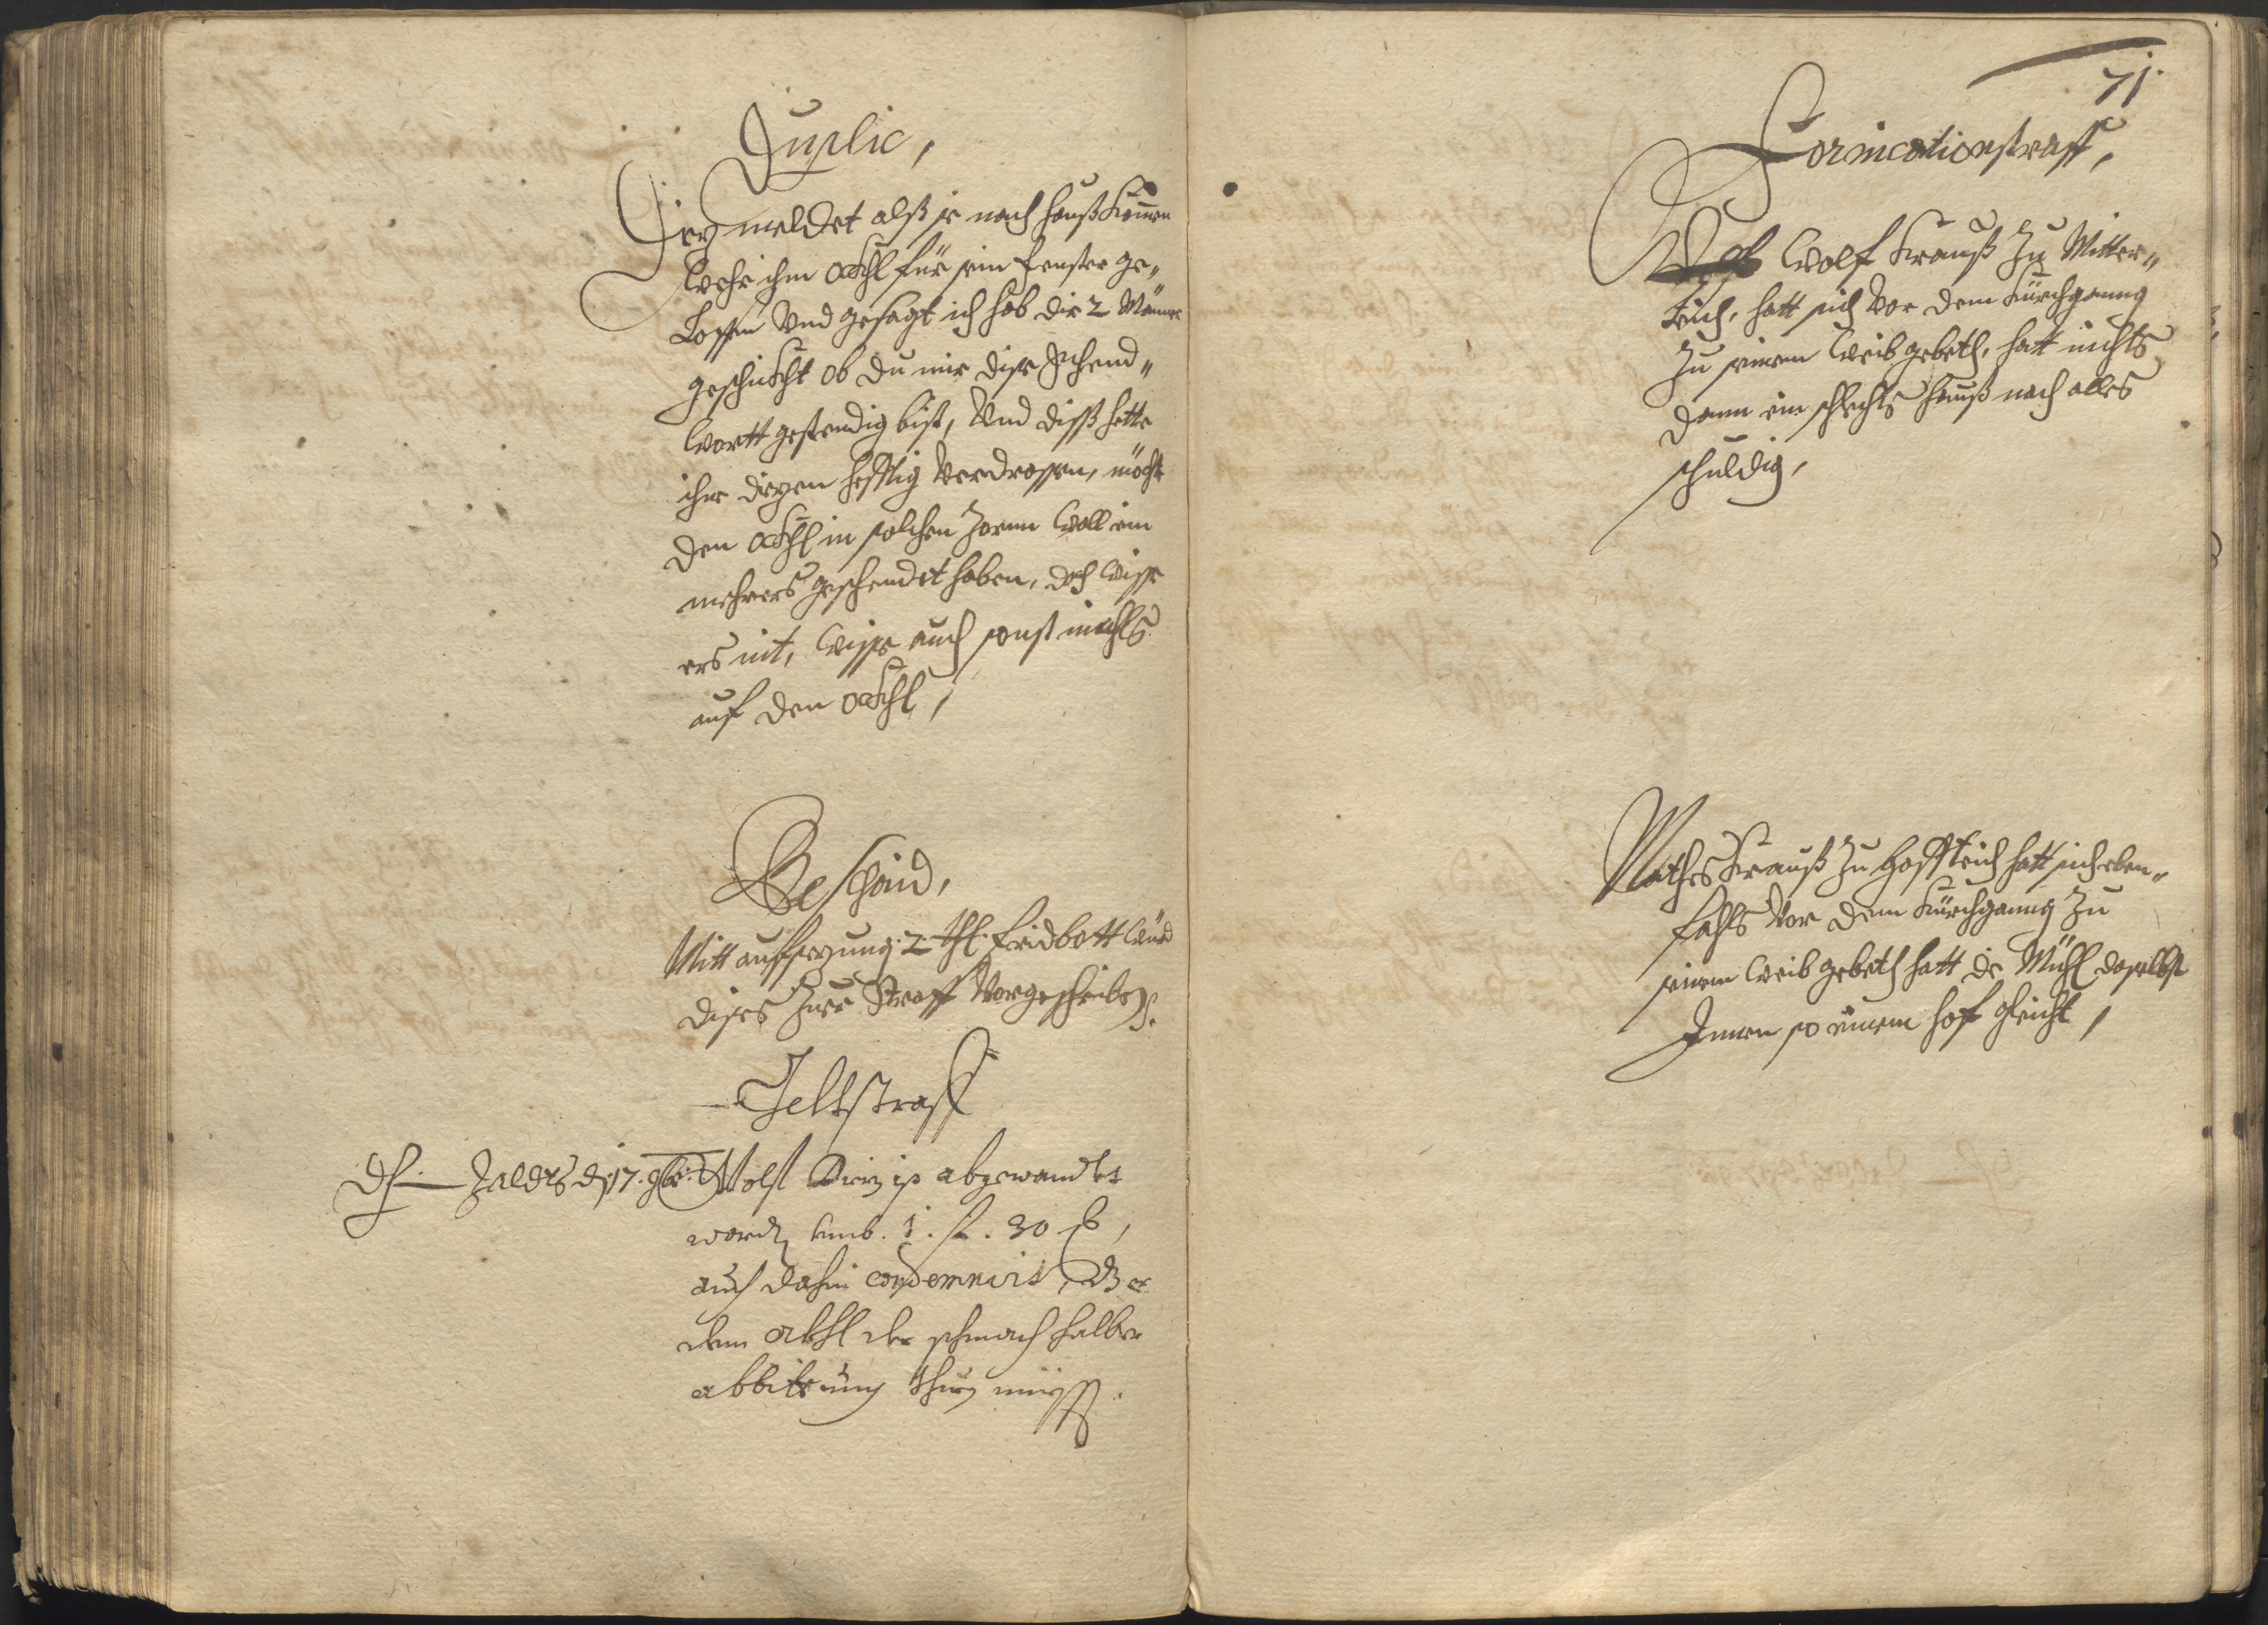 Duplic,
Diez meldet alß er nach hauß kom̄en
wehr ihm Öckhl für sein fenster ge„
loffen Vnd gesagt ich hab dir 2 Männer
geschickht ob du mir dise Schend„
wortt gestendig bist, Vnd diß hette
ihn Diezen hefftig Verdrossen, möcht
den Öckhl in solchen Zorn woll ein
mehrers geschendet haben, doch wisse
ers nit, wisse auch sonst nichts
auf den Öckhl,
Beschaid,
Mitt aufsezung 2 thl. fridbott würd
dises zur Straff Vorgeschriben.
Geltstraff
Zaldts d. 17. 9br: Wolf Diez ist abgewandlet
worden umb. 1. fl. 30 kr,
auch dahin condemnirt, dz er
dem Öckhl der schmach halber
abbittung thun müesse.
71.
Fornicationstraff,
Wolf Krauß zu Mitter„
teich, hatt sich Vor dem Kürchgang
Zu seinem weib gebeth, hatt nichts
dann ein schlechts hauß noch alles
schuldig,
Mathes Krauß zu Hoffteich hatt sich eben„
fahls Vor dem Kürchgang zu
seinem weib gebeth hatt die Mühl daselbst
Innen so einem hof gleicht,